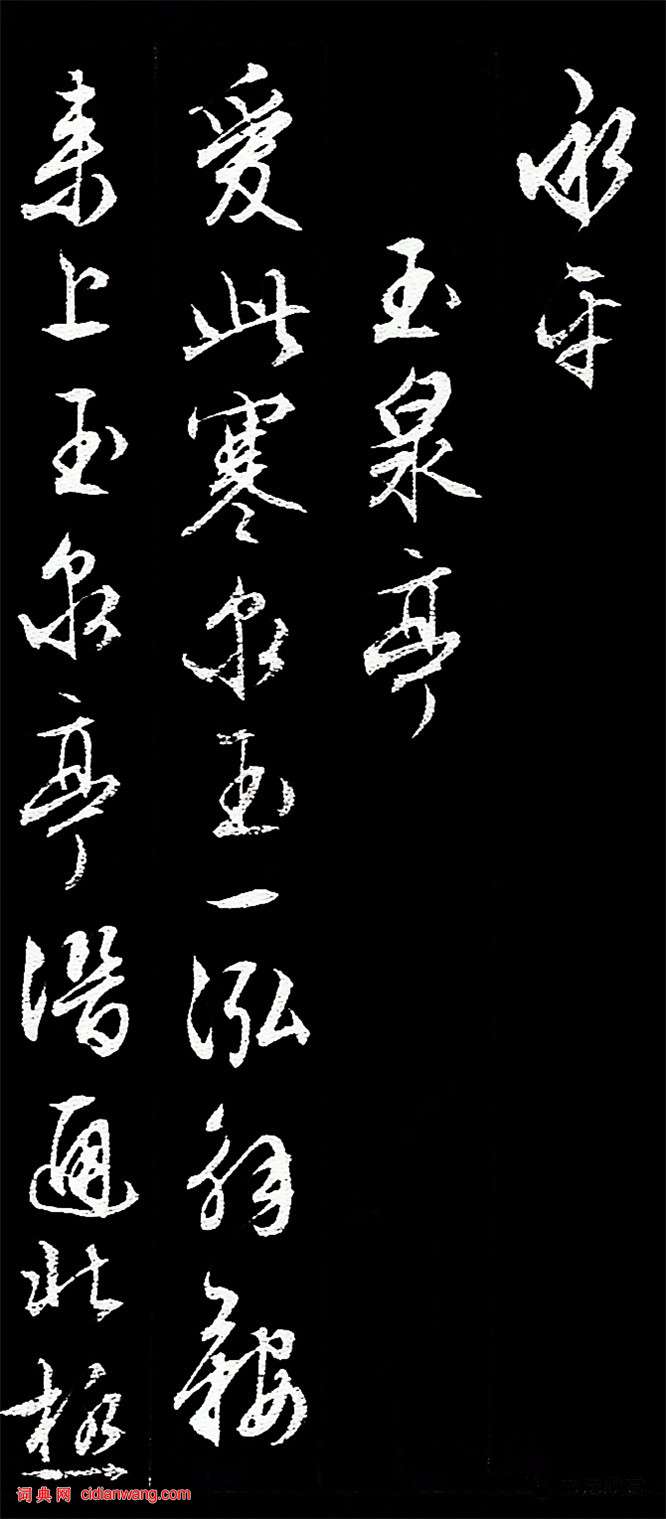 永平
玉泉亭
愛此寒泉玉一泓解鞍
来上玉泉亭潛通北極
词典网 cidianwang.com